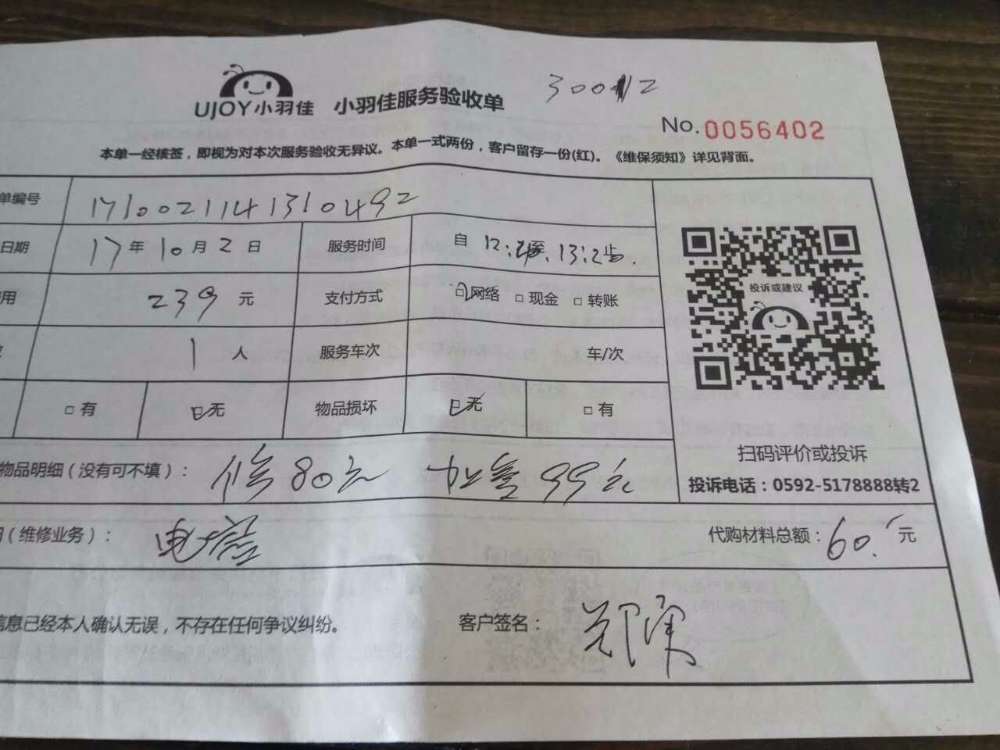 300112
UJOY小羽佳 小羽佳服务验收单
No.0056402
本单一经核签，即视为对本次服务验收无异议。本单一式两份，客户留存一份(红)。《维保须知》详见背面。
单编号 1710021141310492
日期 17年10月2日 服务时间 自12:2 至 13:2 止.
用 239元 支付方式 网络 □现金 □转账
1人 服务车次 车/次
□有 无 物品损坏 无 □有
投诉或建议
扫码评价或投诉
投诉电话：0592-5178888转2
物品明细（没有可不填）： 修80元 加雪99元
（维修业务）： 电容 代购材料总额：60.元
信息已经本人确认无误，不存在任何争议纠纷。 客户签名：